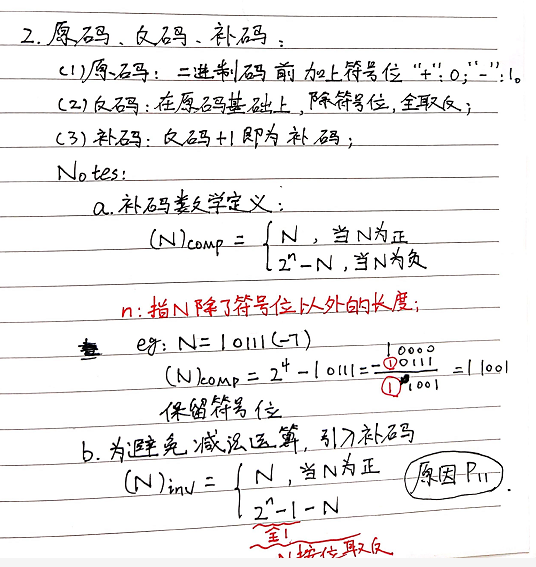 2. 原码、反码、补码：
(1)原码：二进制码前加上符号位“+”:0;“-”:1。
(2)反码：在原码基础上，除符号位，全取反；
(3)补码：反码+1即为补码；
Notes:
a.补码数学定义：
(N)comp = { N ，当N为正
2ⁿ-N，当N为负
n:指N除了符号位以外的长度；
eg: N=10111(-7)
10000
(N)comp = 2⁴-10111= -10111 =11001
11001
保留符号位
b.为避免减法运算，引入补码
(N)inv = { N ，当N为正
2ⁿ-1-N
原因P11
全1
N按位取反